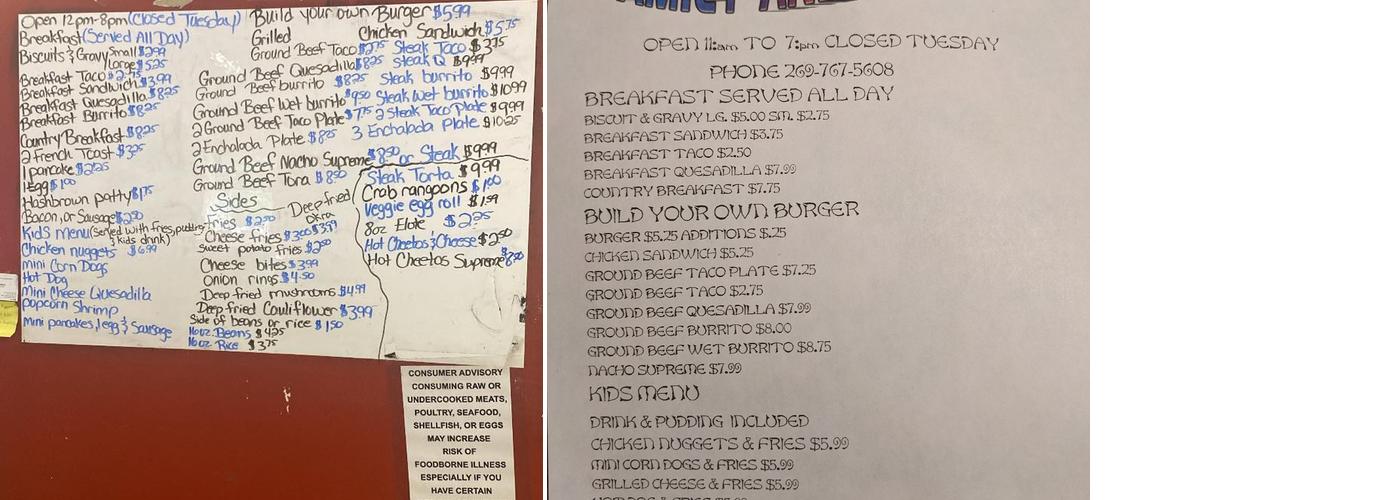 Open 12pm-8pm (Closed Tuesday)
Breakfast (Served All Day)
Biscuits & Gravy Small $2.99
Large $5.25
Breakfast Taco $2.75
Breakfast Sandwich $3.99
Breakfast Quesadilla $8.25
Breakfast Burrito $8.25
Country Breakfast $8.25
2 french Toast $3.25
1 pancake $2.25
1 Egg $1.00
Hashbrown patty $1.75
Bacon, or Sausage $2.50
Kids menu (Served with fries, pudding
& kids drink)
Chicken nuggets $6.99
mini Corn Dogs
Hot Dog
Mini Cheese Quesadilla
Popcorn Shrimp
Mini pancakes, 1 egg & Sausage
Build your own Burger $5.99
Grilled Chicken Sandwich $5.75
Ground Beef Taco $2.75 Steak Taco $3.75
Ground Beef Quesadilla $8.25 Steak Q $9.99
Ground Beef burrito $8.25 Steak burrito $9.99
Ground Beef Wet burrito $9.50 Steak Wet burrito $10.99
2 Ground Beef Taco Plate $7.75 2 Steak Taco Plate $9.99
2 Enchalada Plate $8.25 3 Enchalada Plate $10.25
Ground Beef Nacho Supreme $8.50 or Steak $9.99
Ground Beef Tora $8.50
Sides
Fries $2.50
Deep fried
Okra
$3.99
Cheese fries $3.00
Sweet potato fries $2.50
Cheese bites $3.99
Onion rings $4.50
Deep fried mushrooms $4.99
Deep fried Cauliflower $3.99
Side of beans or rice $1.50
16oz. Beans $4.25
16oz. Rice $3.75
Steak Torta $9.99
Crab rangoons $1.00
Veggie egg roll $1.59
8oz Elote $2.25
Hot Cheetos & Cheese $2.50
Hot Cheetos Supreme $8.50
CONSUMER ADVISORY
CONSUMING RAW OR
UNDERCOOKED MEATS,
POULTRY, SEAFOOD,
SHELLFISH, OR EGGS
MAY INCREASE
RISK OF
FOODBORNE ILLNESS
ESPECIALLY IF YOU
HAVE CERTAIN
OPEN 11:am TO 7:pm CLOSED TUESDAY
PHONE 269-767-5608
BREAKFAST SERVED ALL DAY
BISCUIT & GRAVY LG. $5.00 SM. $2.75
BREAKFAST SANDWICH $3.75
BREAKFAST TACO $2.50
BREAKFAST QUESADILLA $7.99
COUNTRY BREAKFAST $7.75
BUILD YOUR OWN BURGER
BURGER $5.25 ADDITIONS $.25
CHICKEN SANDWICH $5.25
GROUND BEEF TACO PLATE $7.25
GROUND BEEF TACO $2.75
GROUND BEEF QUESADILLA $7.99
GROUND BEEF BURRITO $8.00
GROUND BEEF WET BURRITO $8.75
NACHO SUPREME $7.99
KIDS MENU
DRINK & PUDDING INCLUDED
CHICKEN NUGGETS & FRIES $5.99
MINI CORN DOGS & FRIES $5.99
GRILLED CHEESE & FRIES $5.99